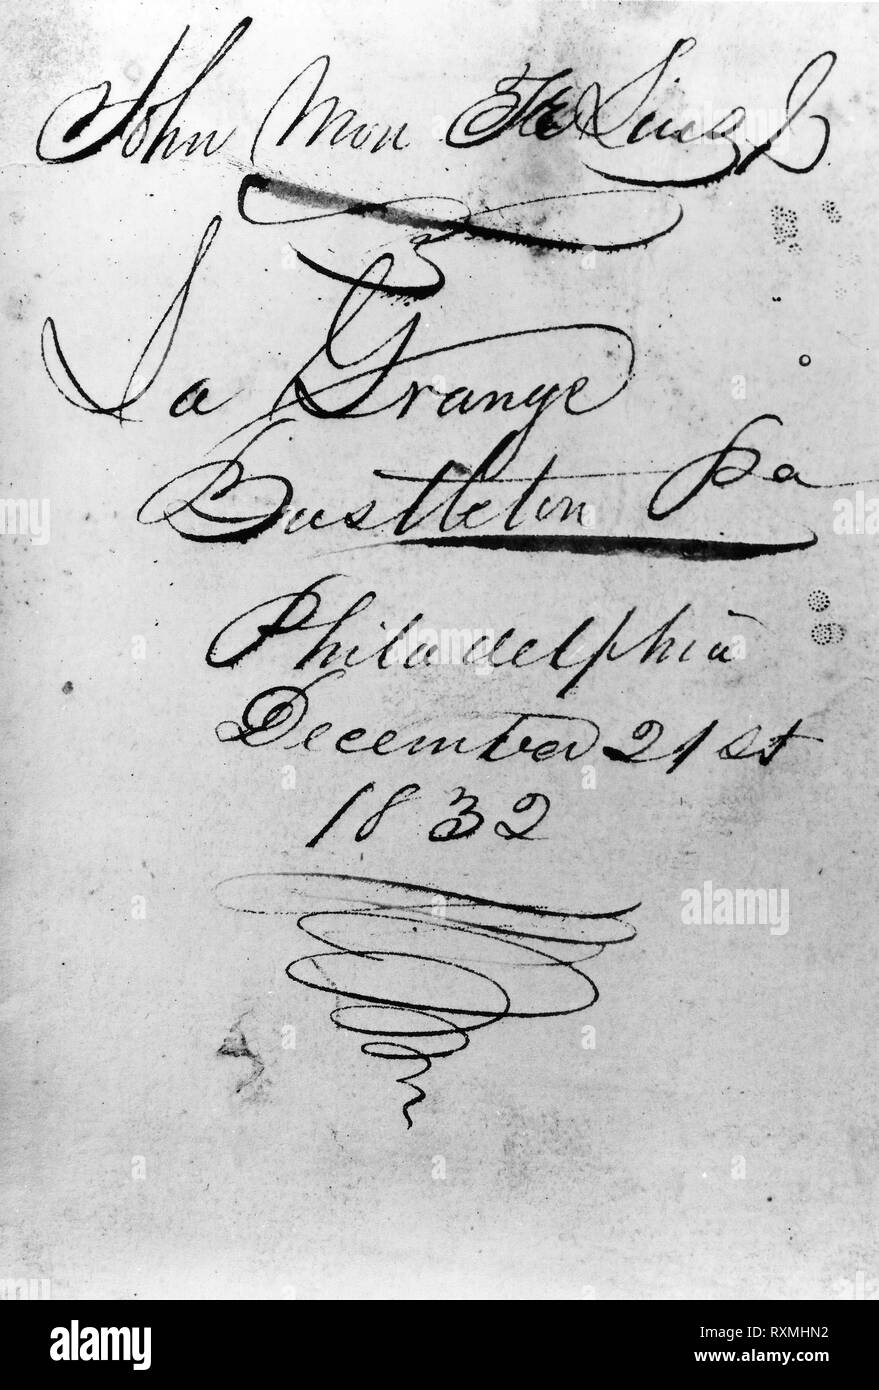 John Mon
La Grange
Bustleton Pa
Philadelphia
December 21st
1832
alamy
Image ID: RXMHN2
www.alamy.com